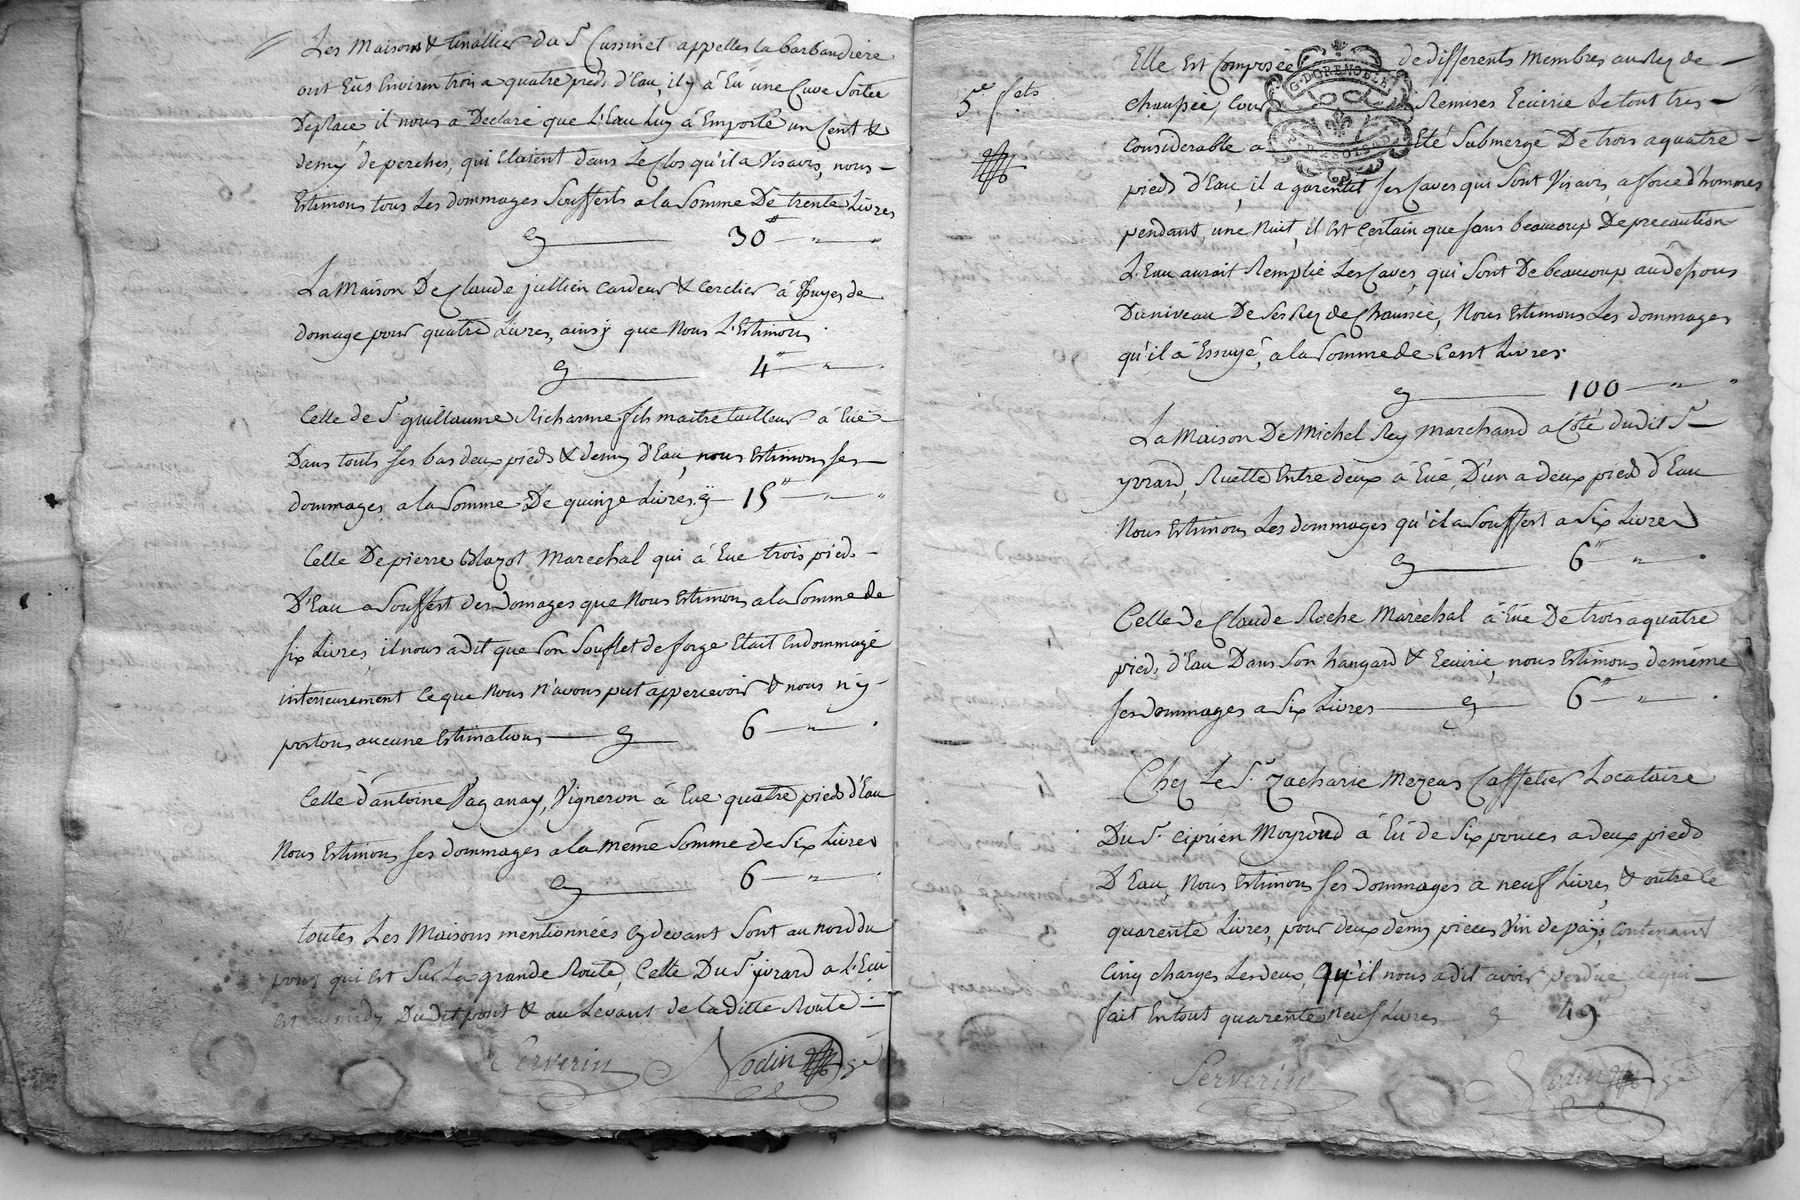 Les Maisons & tinallier du Sr. Cussinet appellés la barbaudiere
ont Eus Environ trois a quatre pieds d'Eau, il y à Eü une Cuve Sortée
De place, il nous a Declaré que L'Eau Luy à Emporté un Cent &
demy de perches, qui Etaient dans Le Clos qu'il a Visavis, nous
Estimons tous Les dommages Soufferts a la Somme De trente Livres
30 " "
La Maison De Claude jullien Cardeur & Cerclier à Essuyés de
domage pour quatre Livres, ainsy que Nous L'Estimons
4 " "
Celle de Sr. guillaume Richarme fils maitre tailleur à Eüe
Dans touts ses bas deux pieds & demy d'Eau, nous Estimons ses
dommages a la Somme De quinze Livres 15 " "
Celle De pierre Blazot Marechal qui à Eue trois pieds
D'Eau a Souffert des Domages que Nous Estimons a la Somme de
six Livres, il nous a dit que Son Soufflet de forge Etait Endommagé
interieurement Ce que Nous N'avons put appercevoir & nous n'y
portons aucune Estimation 6 "
Celle d'antoine Paganay, Vigneron à Eue quatre pieds d'Eau
Nous Estimons ses dommages a la même Somme de Six Livres
6 " "
toutes Les Maisons mentionnées Cy devant Sont au nord du
pont qui Est Sur La grande Route, Celle Du Sr. yvrard a L'Eau
Est au midy Du dit pont & au Levant de la Ditte Route
Serverin Nodin
5e fets
G. D GRENOBLE
Elle Est Composée de differents Membres au Rez de
chaussée, Cour Remises Ecuirie Le tout tres
Considerable a Eté Submergé De trois a quatre
pieds d'Eau, il a garentit ses Caves qui Sont Visavis, a force d'hommes
pendant une Nuit, il Est Certain que sans beaucoup De precaution
L'Eau aurait Remplie Les Caves, qui Sont De beaucoup au dessous
Du niveau De Ses Rez de Chaussée, Nous Estimons Les dommages
qu'il a Essuyé, a la Somme de Cent Livres
100 " "
La Maison De Michel Rey Marchand a Côté du dit Sr.
yvrard, Ruette Entre deux à Eüe, D'un a deux pied d'Eau
Nous Estimons Les dommages qu'il a Souffert a Six Livres
6 "
Celle de Claude Roche Maréchal à Eüe De trois a quatre
pieds d'Eau Dans Son hangard & Ecuirie, nous Estimons de même
ses Dommages a Six Livres 6 "
Chez Le Sr. Zacharie Mezeas Caffetier Locataire
Du Sr. Ciprien Moyroud à Eü de Six pouces a deux pieds
D'Eau, Nous Estimons ses Dommages a neuf Livres, & outre Ce
quarente Livres, pour deux demy pieces Vin de païs, Contenant
Cinq charges Les deux, qu'il nous a dit avoir perdue, ce qui
fait En tout quarente neuf Livres 49
Serverin Nodin